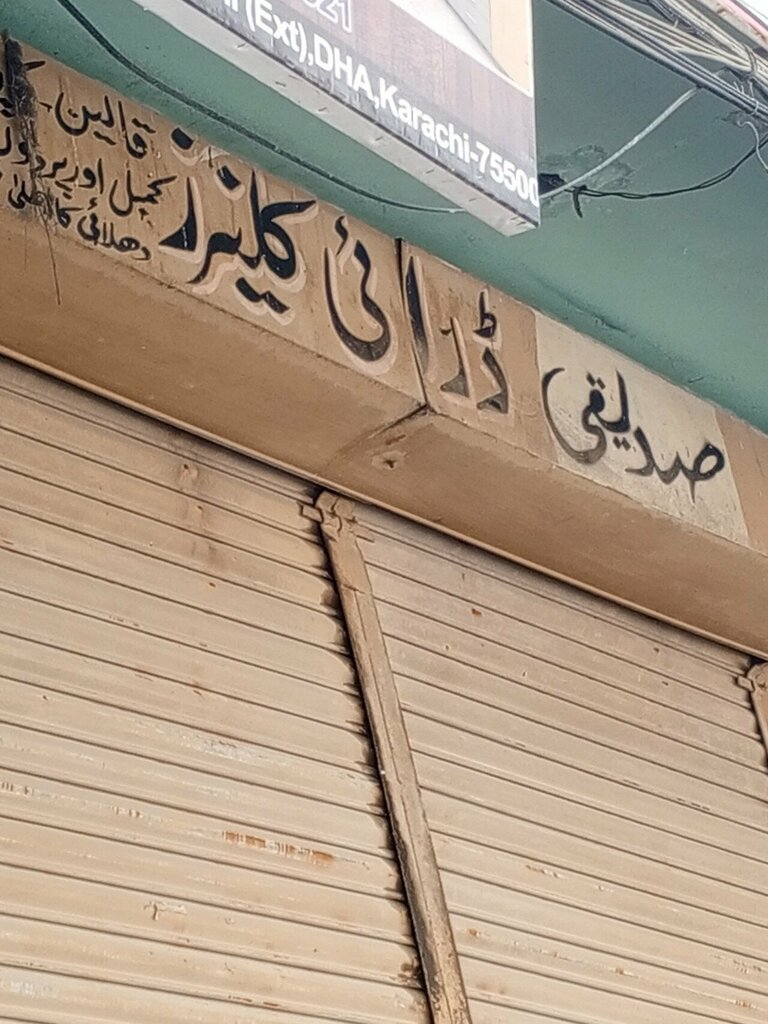 2021
(Ext),DHA,Karachi-75500
صدیقی ڈرائی کلینرز
قالین
کمبل اور پردوں
دھلائی کا اعلیٰ